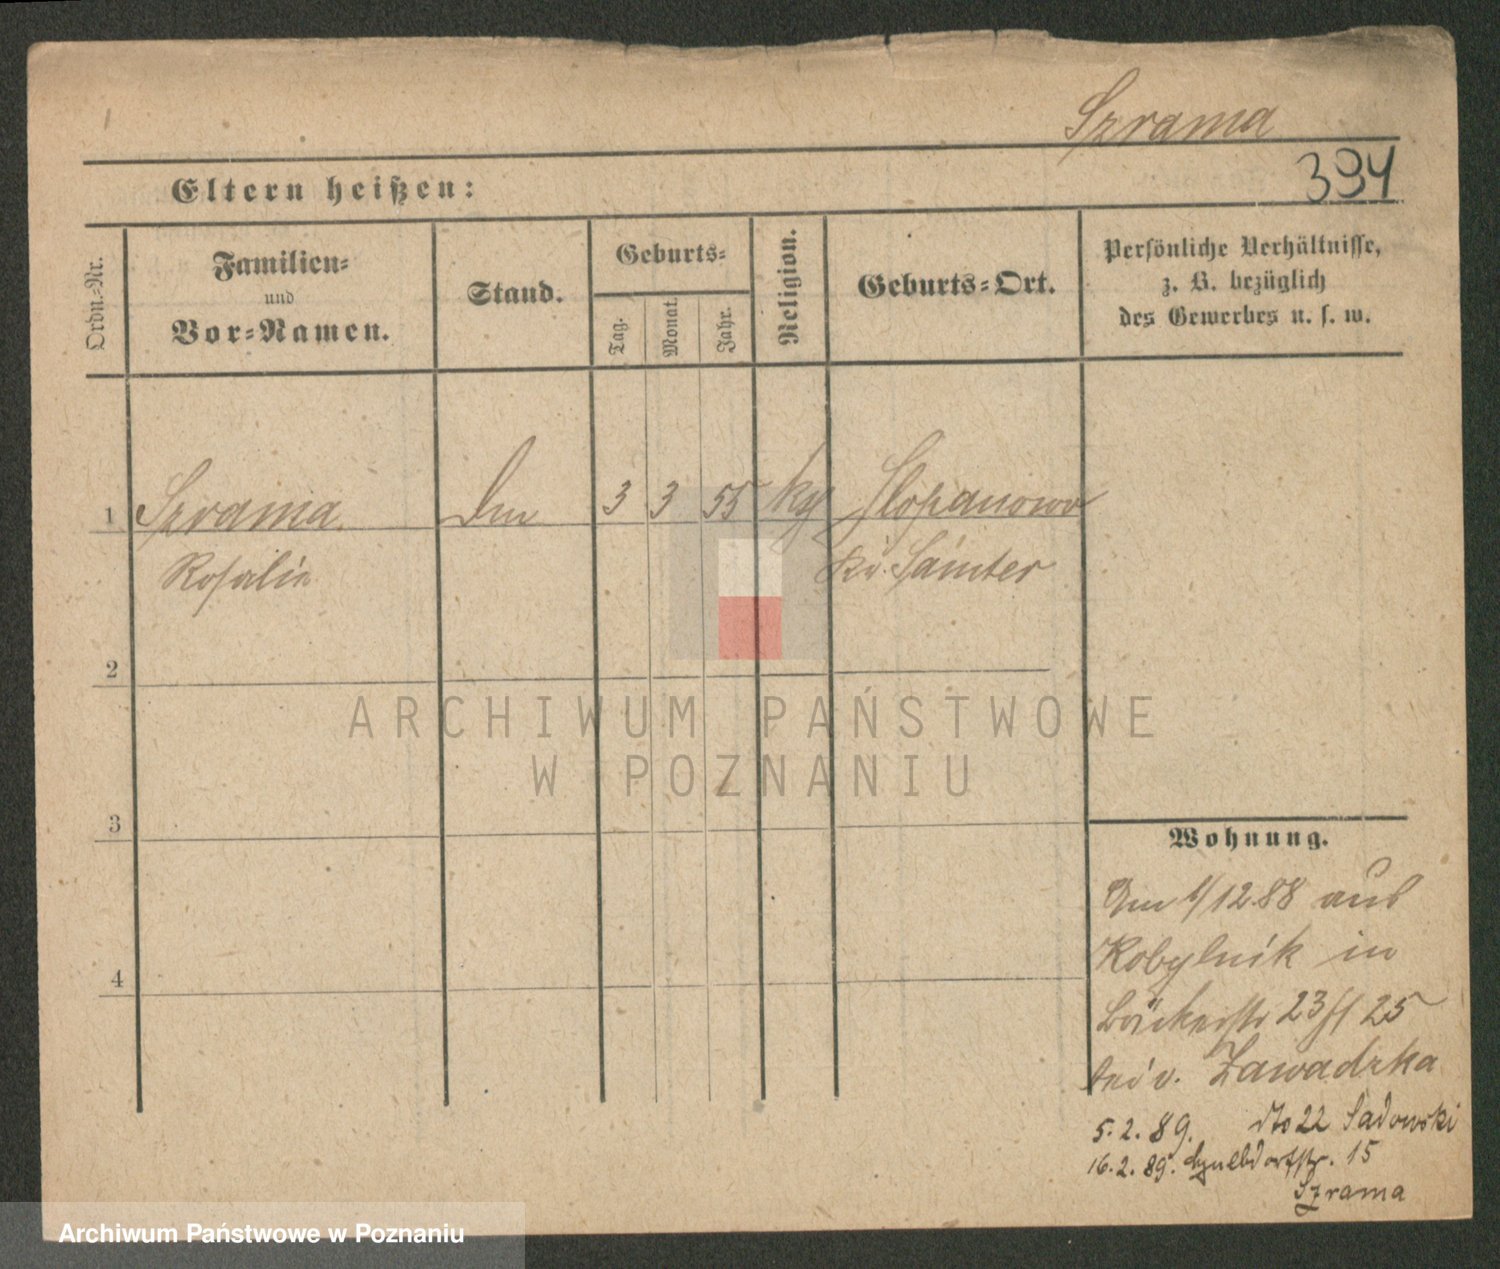 Szrama
394
Eltern heißen:
Ordn.-Nr.
Familien-
und
Vor-Namen.
Stand.
Geburts-
Tag.
Monat.
Jahr.
Religion.
Geburts-Ort.
Persönliche Verhältnisse,
z. B. bezüglich
des Gewerbes u. s. w.
1 Szrama 3 3 55 Slopanowo
Rosalie Kr. Samter
2
3
4
Wohnung.
Am 1/12.88 aus
Kobylnik in
Bäckerstr 23 25
bei v. Zawadzka
5.2.89. dto 22 Sadowski
16.2.89. 15
Szrama
ARCHIWUM PAŃSTWOWE
W POZNANIU
Archiwum Państwowe w Poznaniu